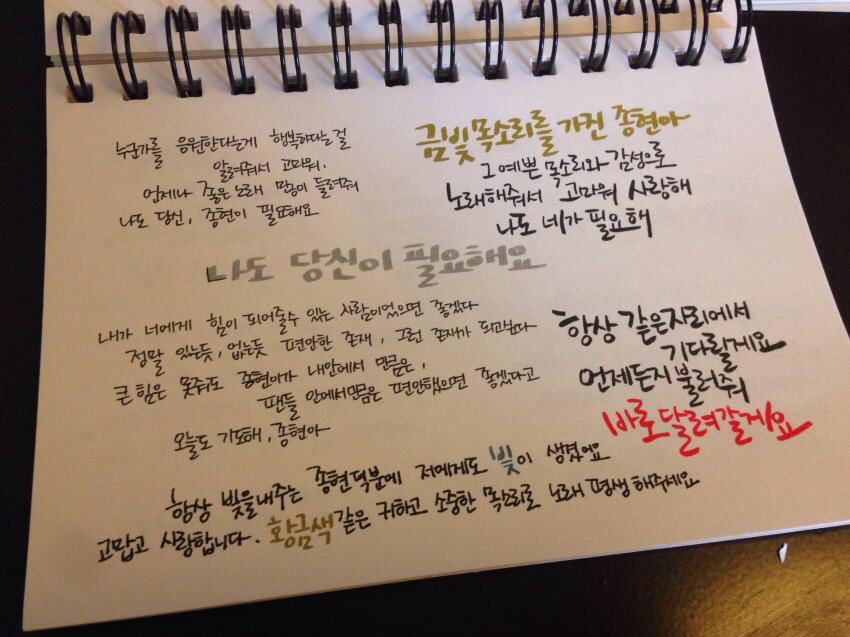 누군가를 응원한다는게 행복하다는걸
알려줘서 고마워,
언제나 좋은 노래 많이 들려줘
나도 당신, 종현이 필요해요
금빛 목소리를 가진 종현아
그 예쁜 목소리와 감성으로
노래해줘서 고마워 사랑해
나도 네가 필요해
나도 당신이 필요해요
내가 너에게 힘이 되어줄수 있는 사람이었으면 좋겠다
정말 있는듯, 없는듯 편안한 존재, 그런 존재가 되고싶다
큰 힘은 못줘도 종현이가 내안에서 만큼은,
팬들 안에서만큼은 편안했으면 좋겠다고
오늘도 기도해, 종현아
항상 같은자리에서
기다릴게요
언제든지 불러줘
바로 달려갈게요
항상 빛을내주는 종현덕분에 저에게도 빛이 생겼어요
고맙고 사랑합니다. 황금색 같은 귀하고 소중한 목소리로 노래 평생 해주세요